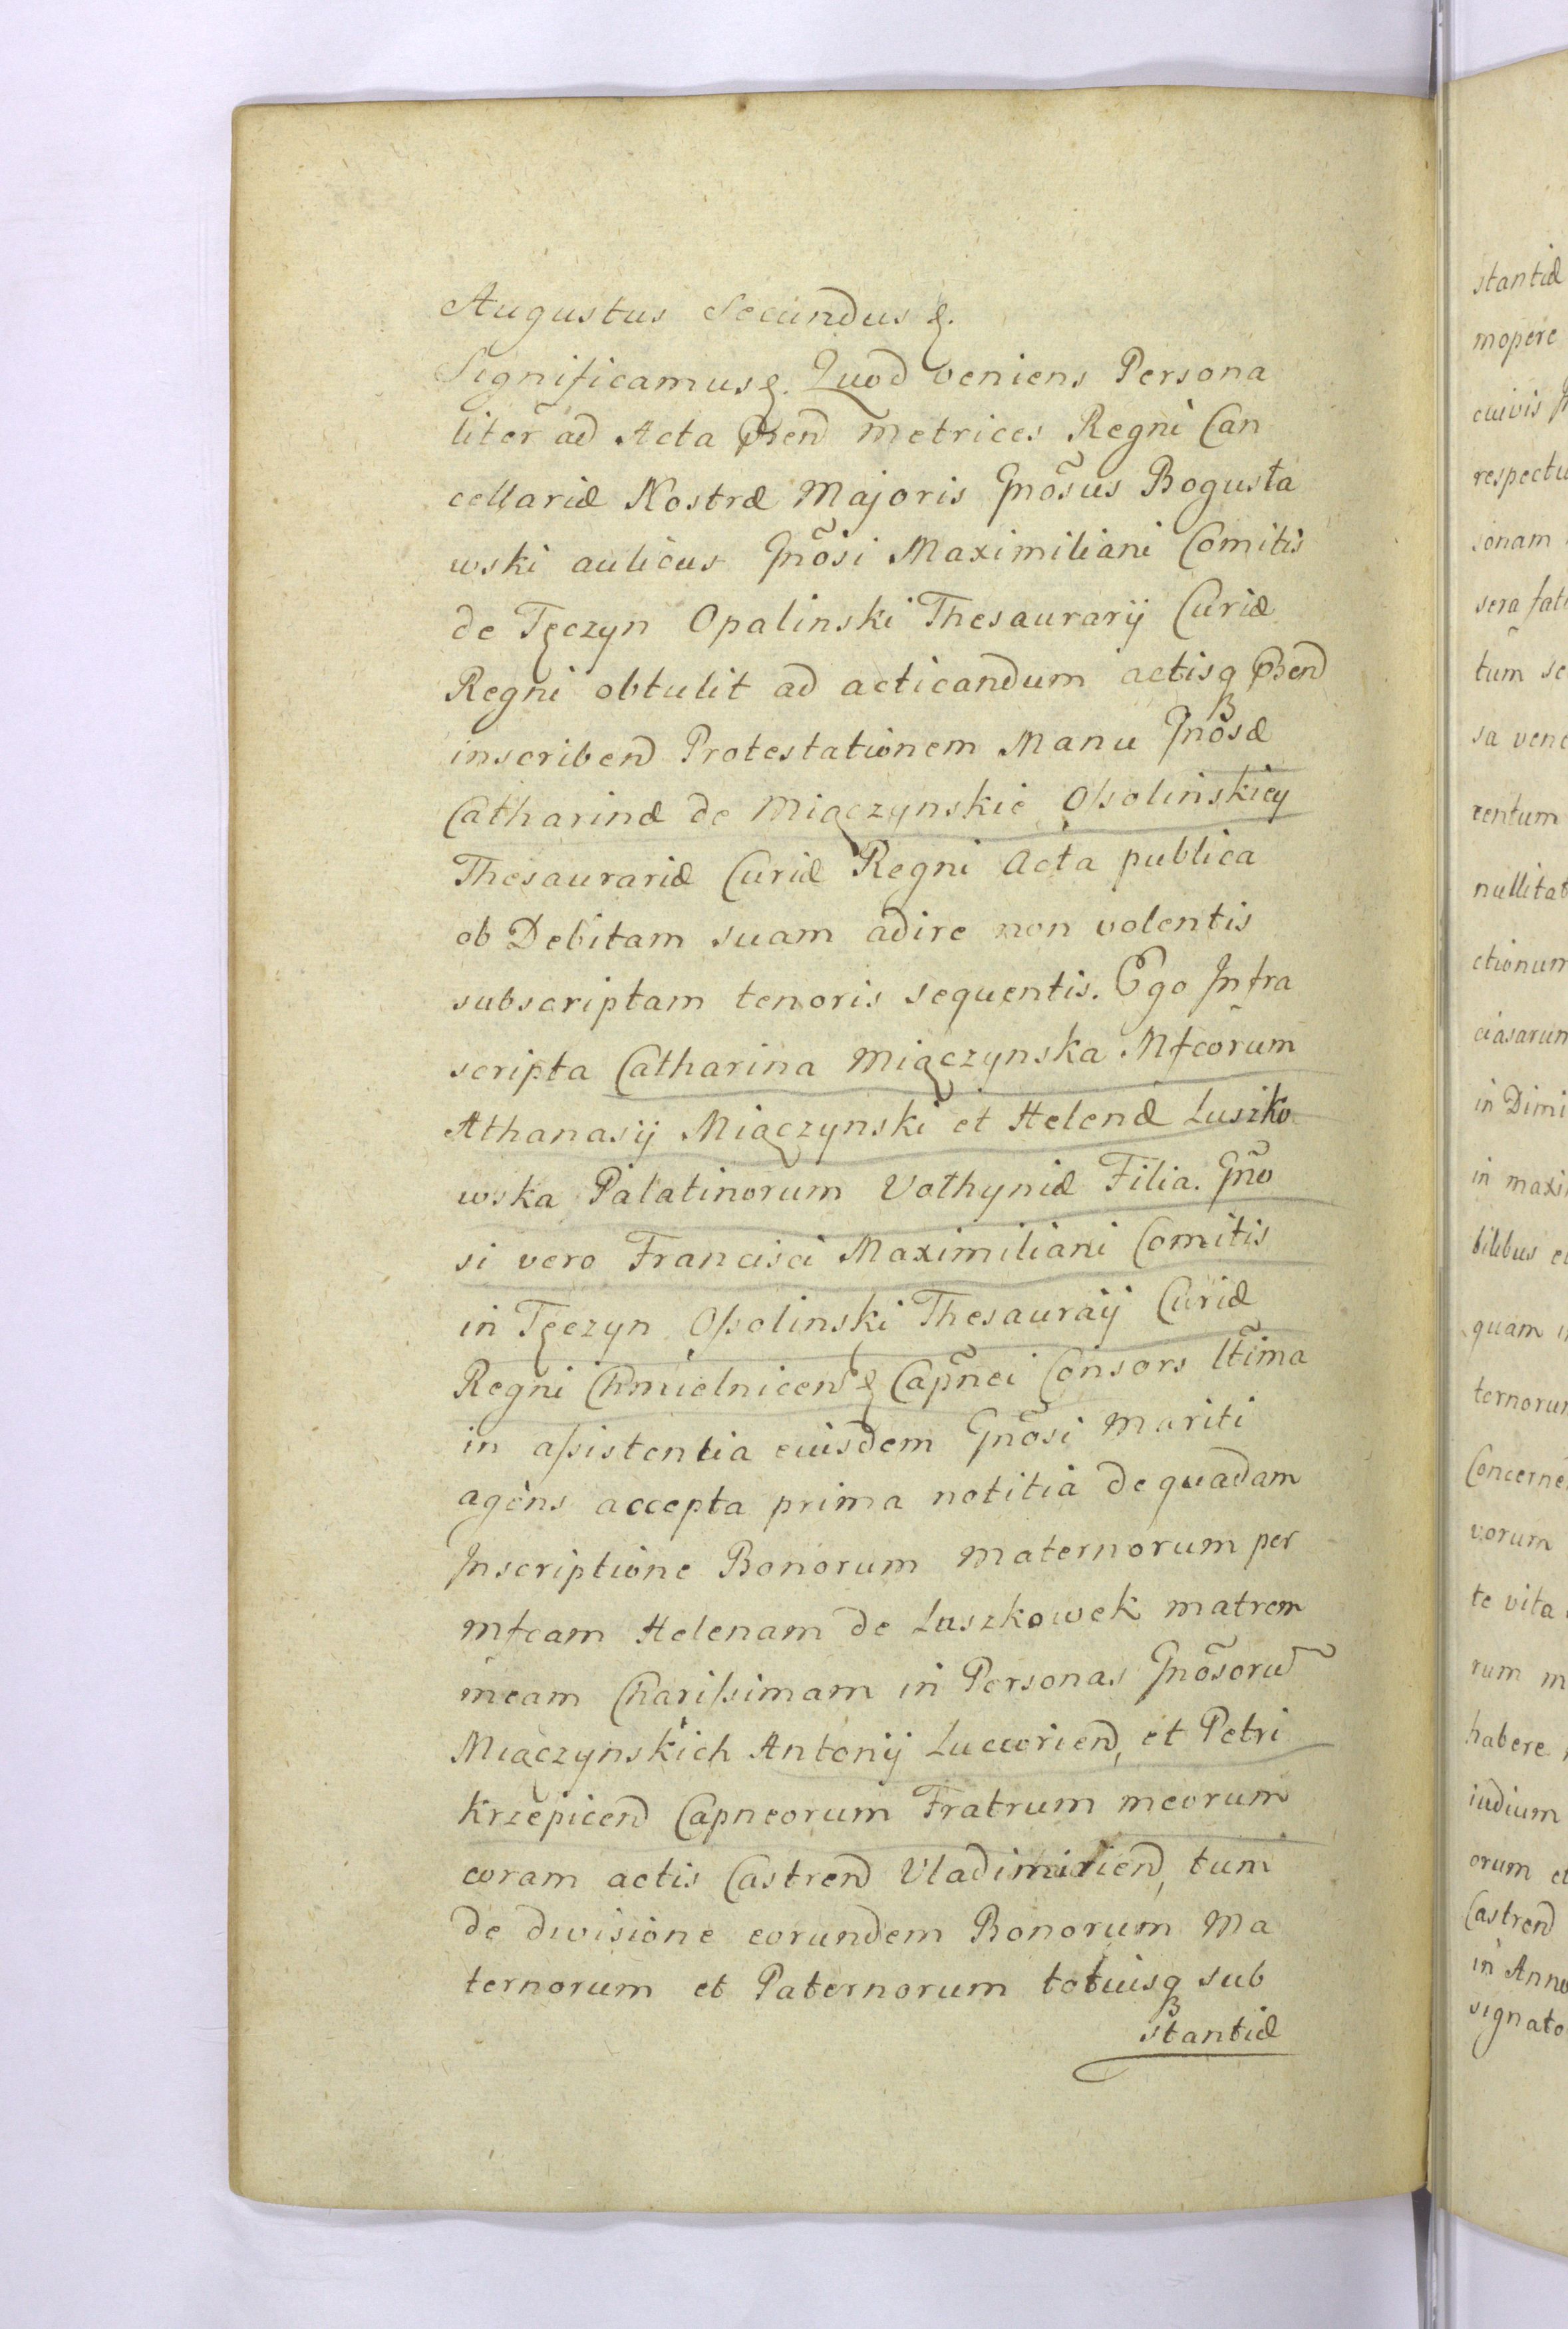 Augustus Secundus &.
Significamus &. Quod veniens Persona
liter ad Acta Prēn Metrices Regni Can
cellariæ Nostræ Majoris Gnõsus Bogusła
wski aulicus Gnõsi Maximiliani Comitis
de Tęczyn Opalinski Thesaurarij Curiæ
Regni obtulit ad acticandum actisq prēn
inscribend Protestationem Manu Gnõsæ
Catharinæ de Miączynskie Ossolinskiey
Thesaurariæ Curiæ Regni Acta publica
ob Debitam suam adire non volentis
subscriptam tenoris sequentis. Ego Infra
scripta Catharina Miączynska Mfcorum
Athanasij Miączynski et Helenæ Luszko
wska Palatinorum Volhyniæ Filia. Gño
si vero Francisci Maximiliani Comitis
in Tęczyn Ossolinski Thesauraij Curiæ
Regni Chmielnicen & Capñei Consors lt̃ima
in assistentia eiusdem Gnõsi Mariti
agens accepta prima notitia de quadam
Inscriptione Bonorum Maternorum per
Mfcam Helenam de Luszkowek matrem
meam Charissimam in Personas Gnõsorũ
Miączynskich Antonij Luceorien, et Petri
Krzepicen Capneorum Fratrum meorum
coram actis Castren Vladimirien, tum
de divisione eorundem Bonorum Ma
ternorum et Paternorum totiusq sub
stantiæ
stantiæ
mopere
cuivis
respectu
sonam
sera
tum
sa
rentum
nullitat
ctionum
ciasarum
in Dimi
in maxi
bilibus
quam
ternorum
Concerne
vorum
te vita
rum
habere
iudium
orum
Castren
in Anno
signato